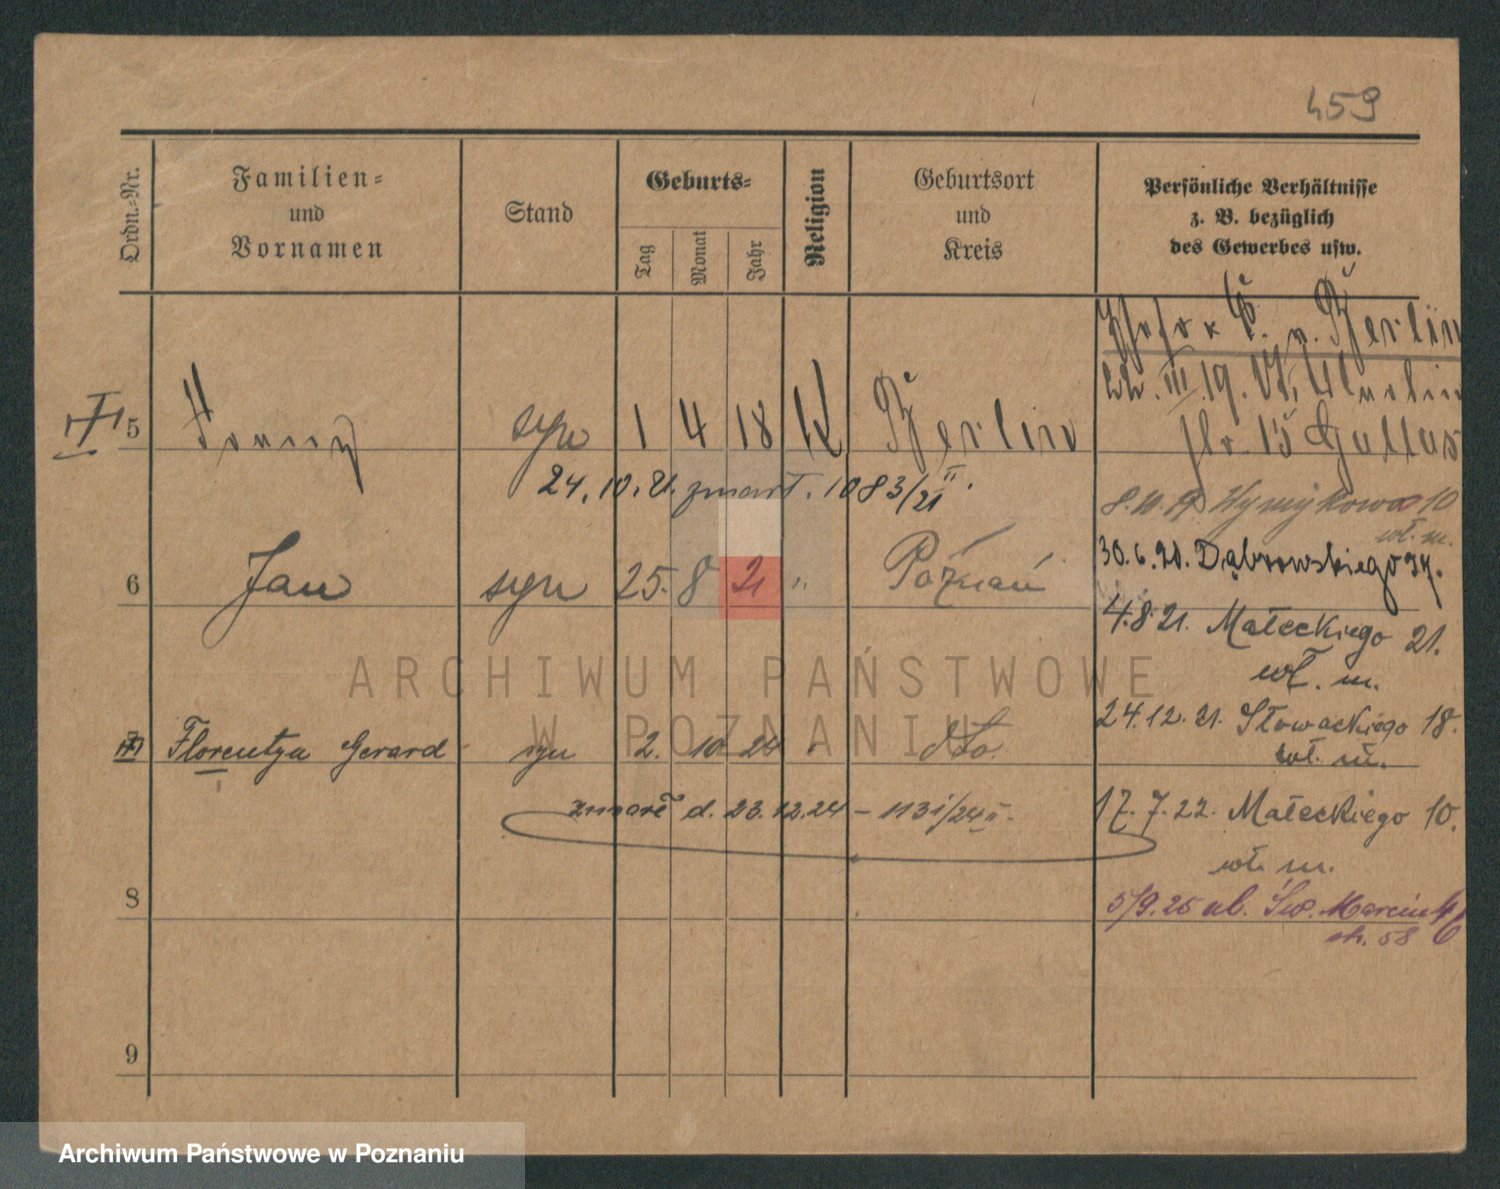 459
Ordn.-Nr.
Familien-
und
Vornamen
Stand
Geburts-
Tag
Monat
Jahr
Religion
Geburtsort
und
Kreis
Persönliche Verhältnisse
z. B. bezüglich
des Gewerbes usw.
v. Berlin
22.III.19. 
5 syn 1 4 18 K Berlin
str. 15 Gallas
24.10.21. zmarł. 1083/21 II.
8.11.19 10
wł. m.
30.6.20. Dąbrowskiego 37.
6 Jan syn 25. 8 21 " Poznań
4.8.21. Małeckiego 21.
wł. m.
24.12.21. Słowackiego 18.
wł. m.
7 Florentyn Gerard syn 2. 10 24 " dto.
zmarł d. 23.12.24 – 1131/24 II.
17.7.22. Małeckiego 10.
wł. m.
8
5/9.25 ul. Św. Marcin 46
58
9
ARCHIWUM PAŃSTWOWE
W POZNANIU
Archiwum Państwowe w Poznaniu